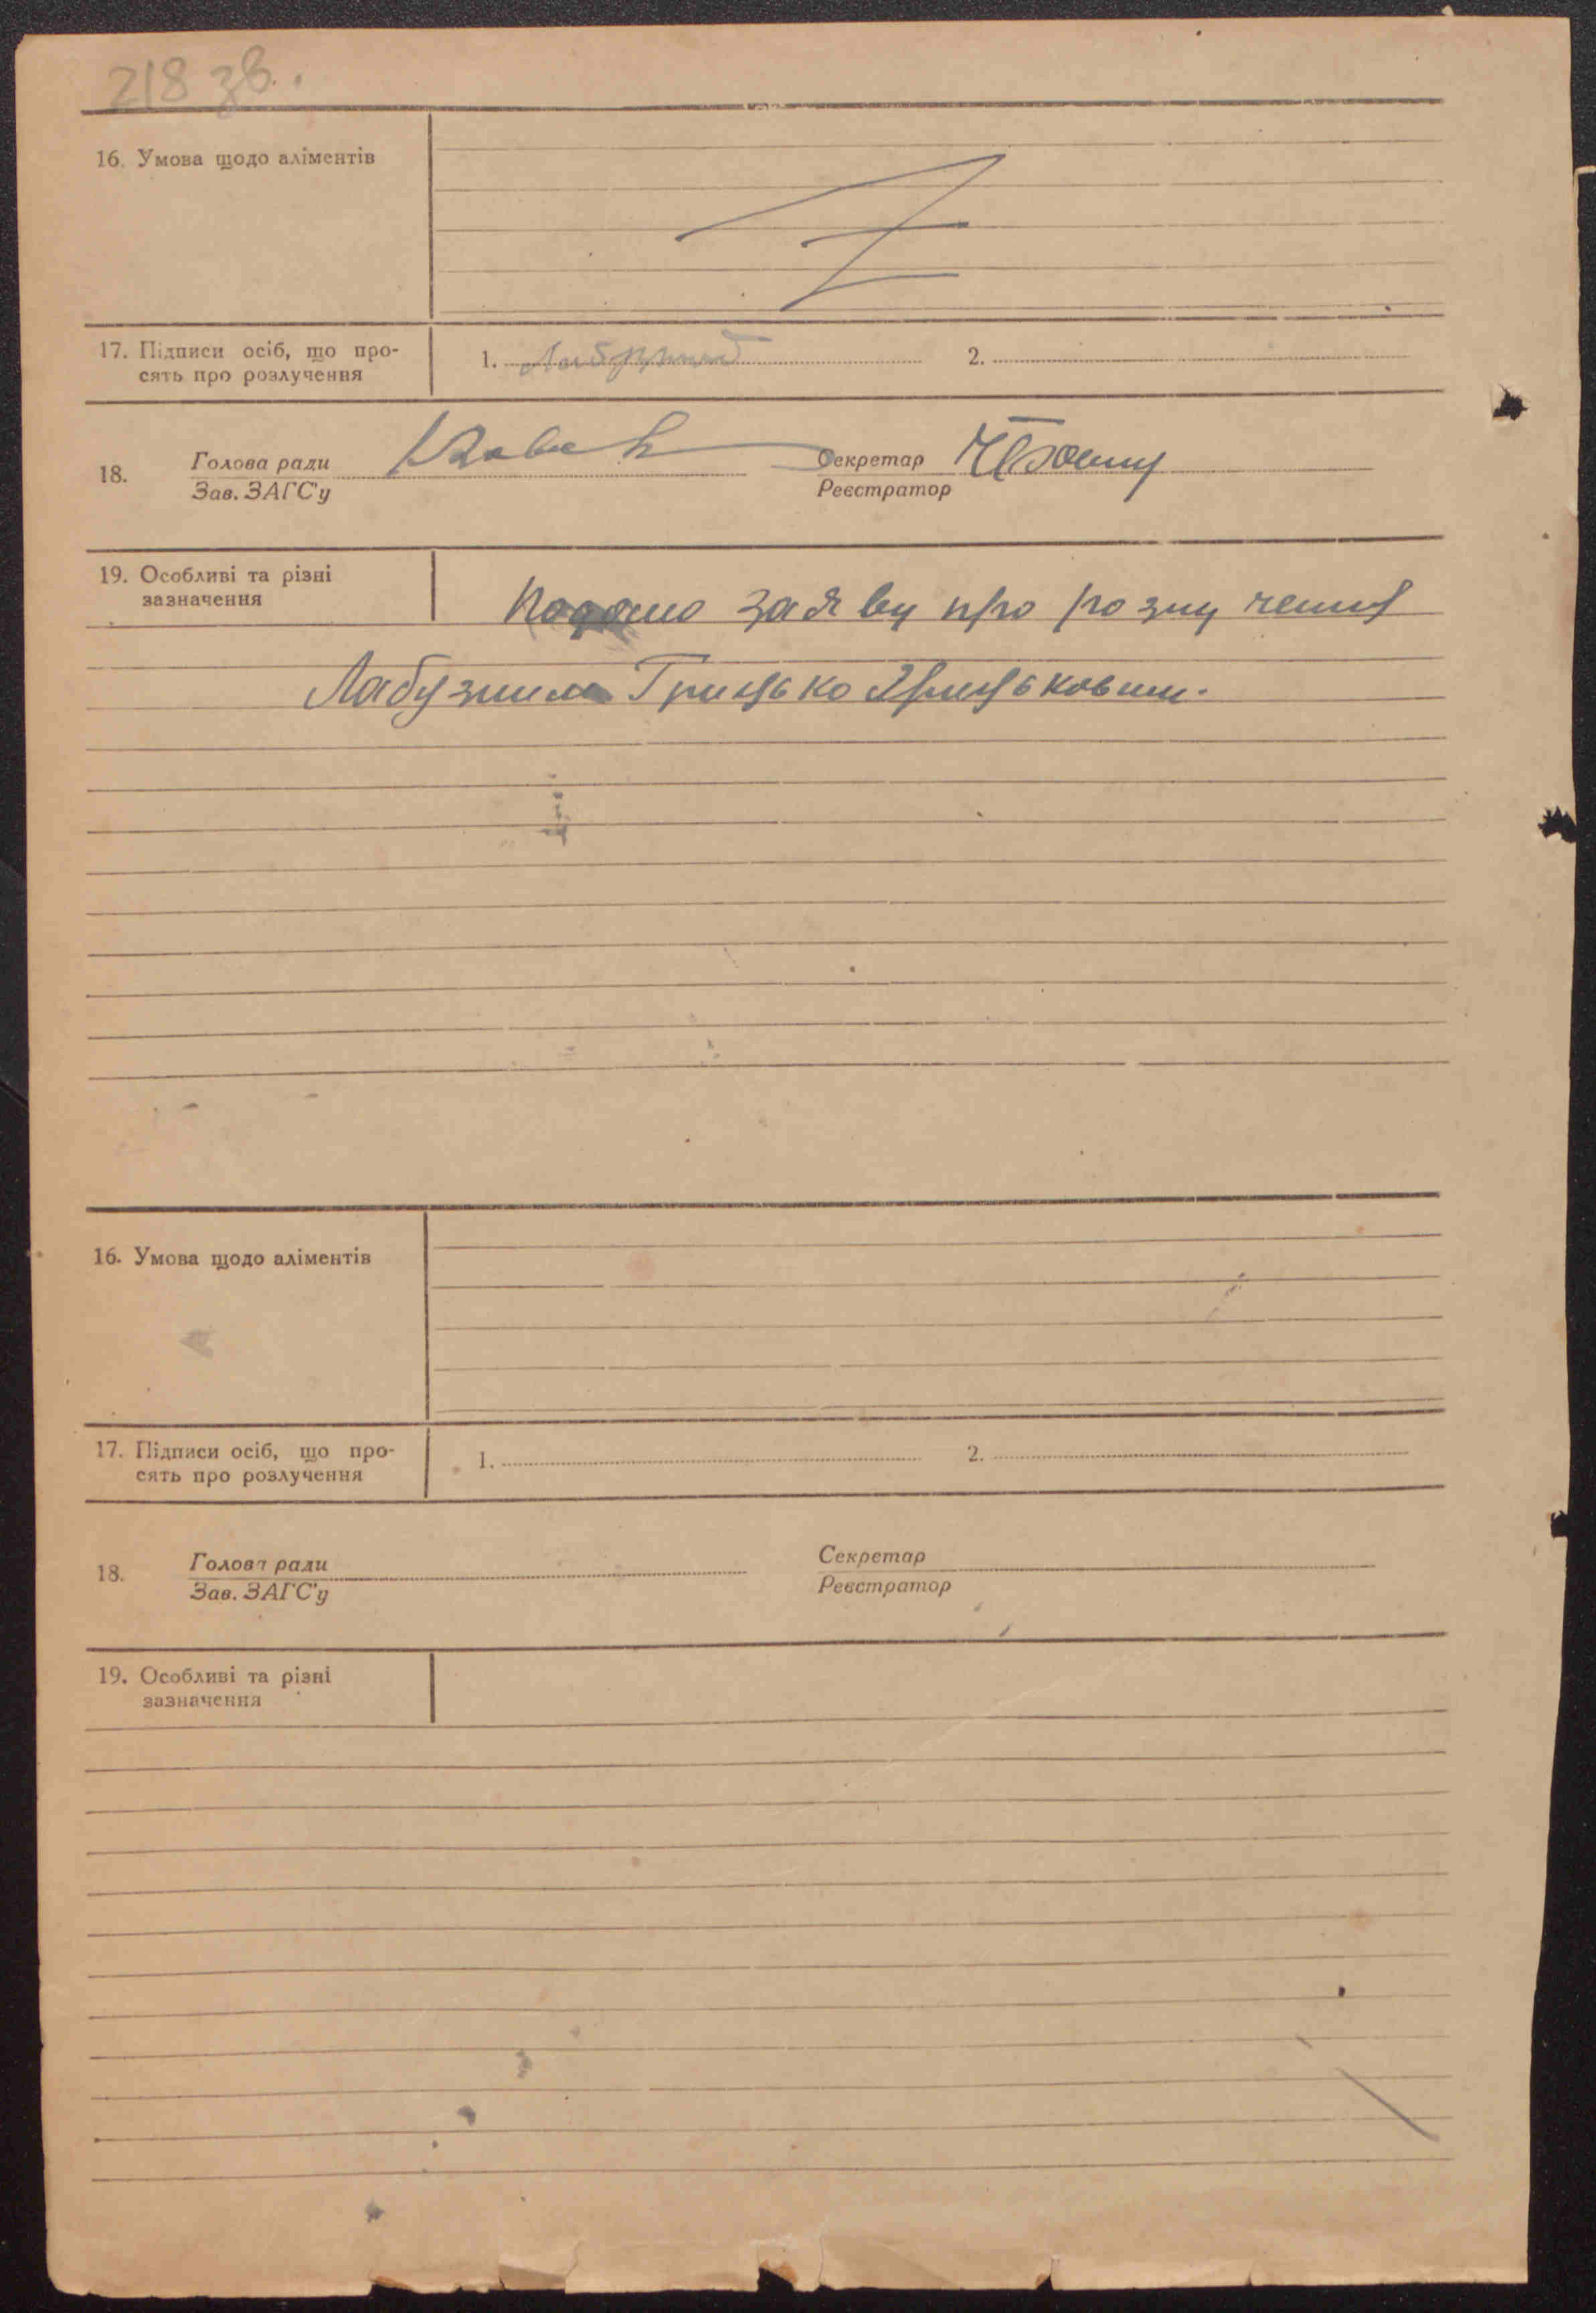 218 зв.
16. Умова щодо аліментів
17. Підписи осіб, що про-
сять про розлучення
1.
2.
18.
Голова ради
Зав. ЗАГС'у
Секретар
Реєстратор
19. Особливі та різні
зазначення
Подано заяву про розлучення
Лабузним Грицько Грицькович.
16. Умова щодо аліментів
17. Підписи осіб, що про-
сять про розлучення
1.
2.
18.
Голова ради
Зав. ЗАГС'у
Секретар
Реєстратор
19. Особливі та різні
зазначення